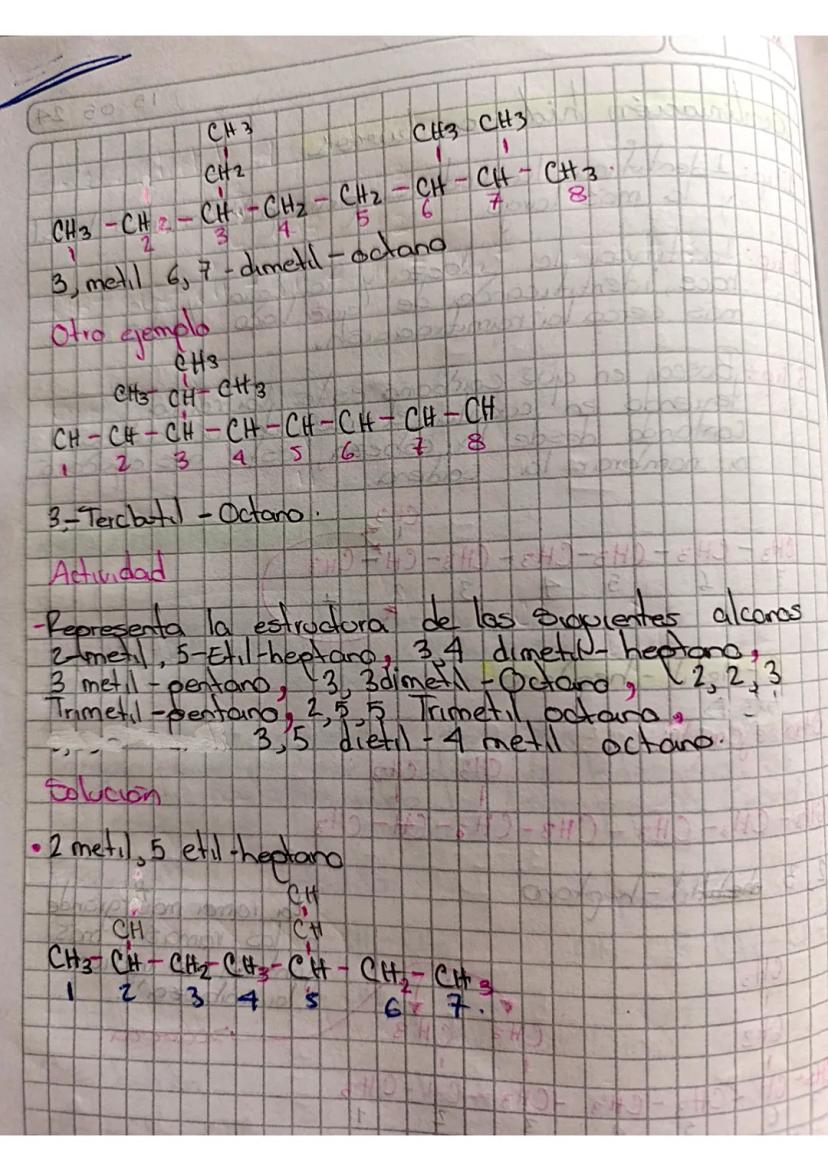 CH3 CH3 CH3
CH2
CH3 - CH2 - CH - CH2 - CH2 - CH - CH - CH3
1 2 3 4 5 6 7 8
3, metil 6, 7 - dimetil - octano
Otro ejemplo
CH3
CH3 - CH - CH3
CH - CH - CH - CH - CH - CH - CH - CH
1 2 3 4 5 6 7 8
3-Tercbutil - Octano.
Actividad
-Representa la estructura de los siguientes alcanos
2-metil, 5-Etil-heptano, 3,4 dimetil- heptano,
3 metil - pentano, 3, 3dimetil - Octano, 2, 2, 3
Trimetil - pentano, 2, 5, 5 Trimetil octano,
3, 5 dietil - 4 metil octano.
Solución
• 2 metil, 5 etil - heptano
CH
CH CH
CH3 - CH - CH2 - CH3 - CH - CH2 - CH3
1 2 3 4 5 6 7.